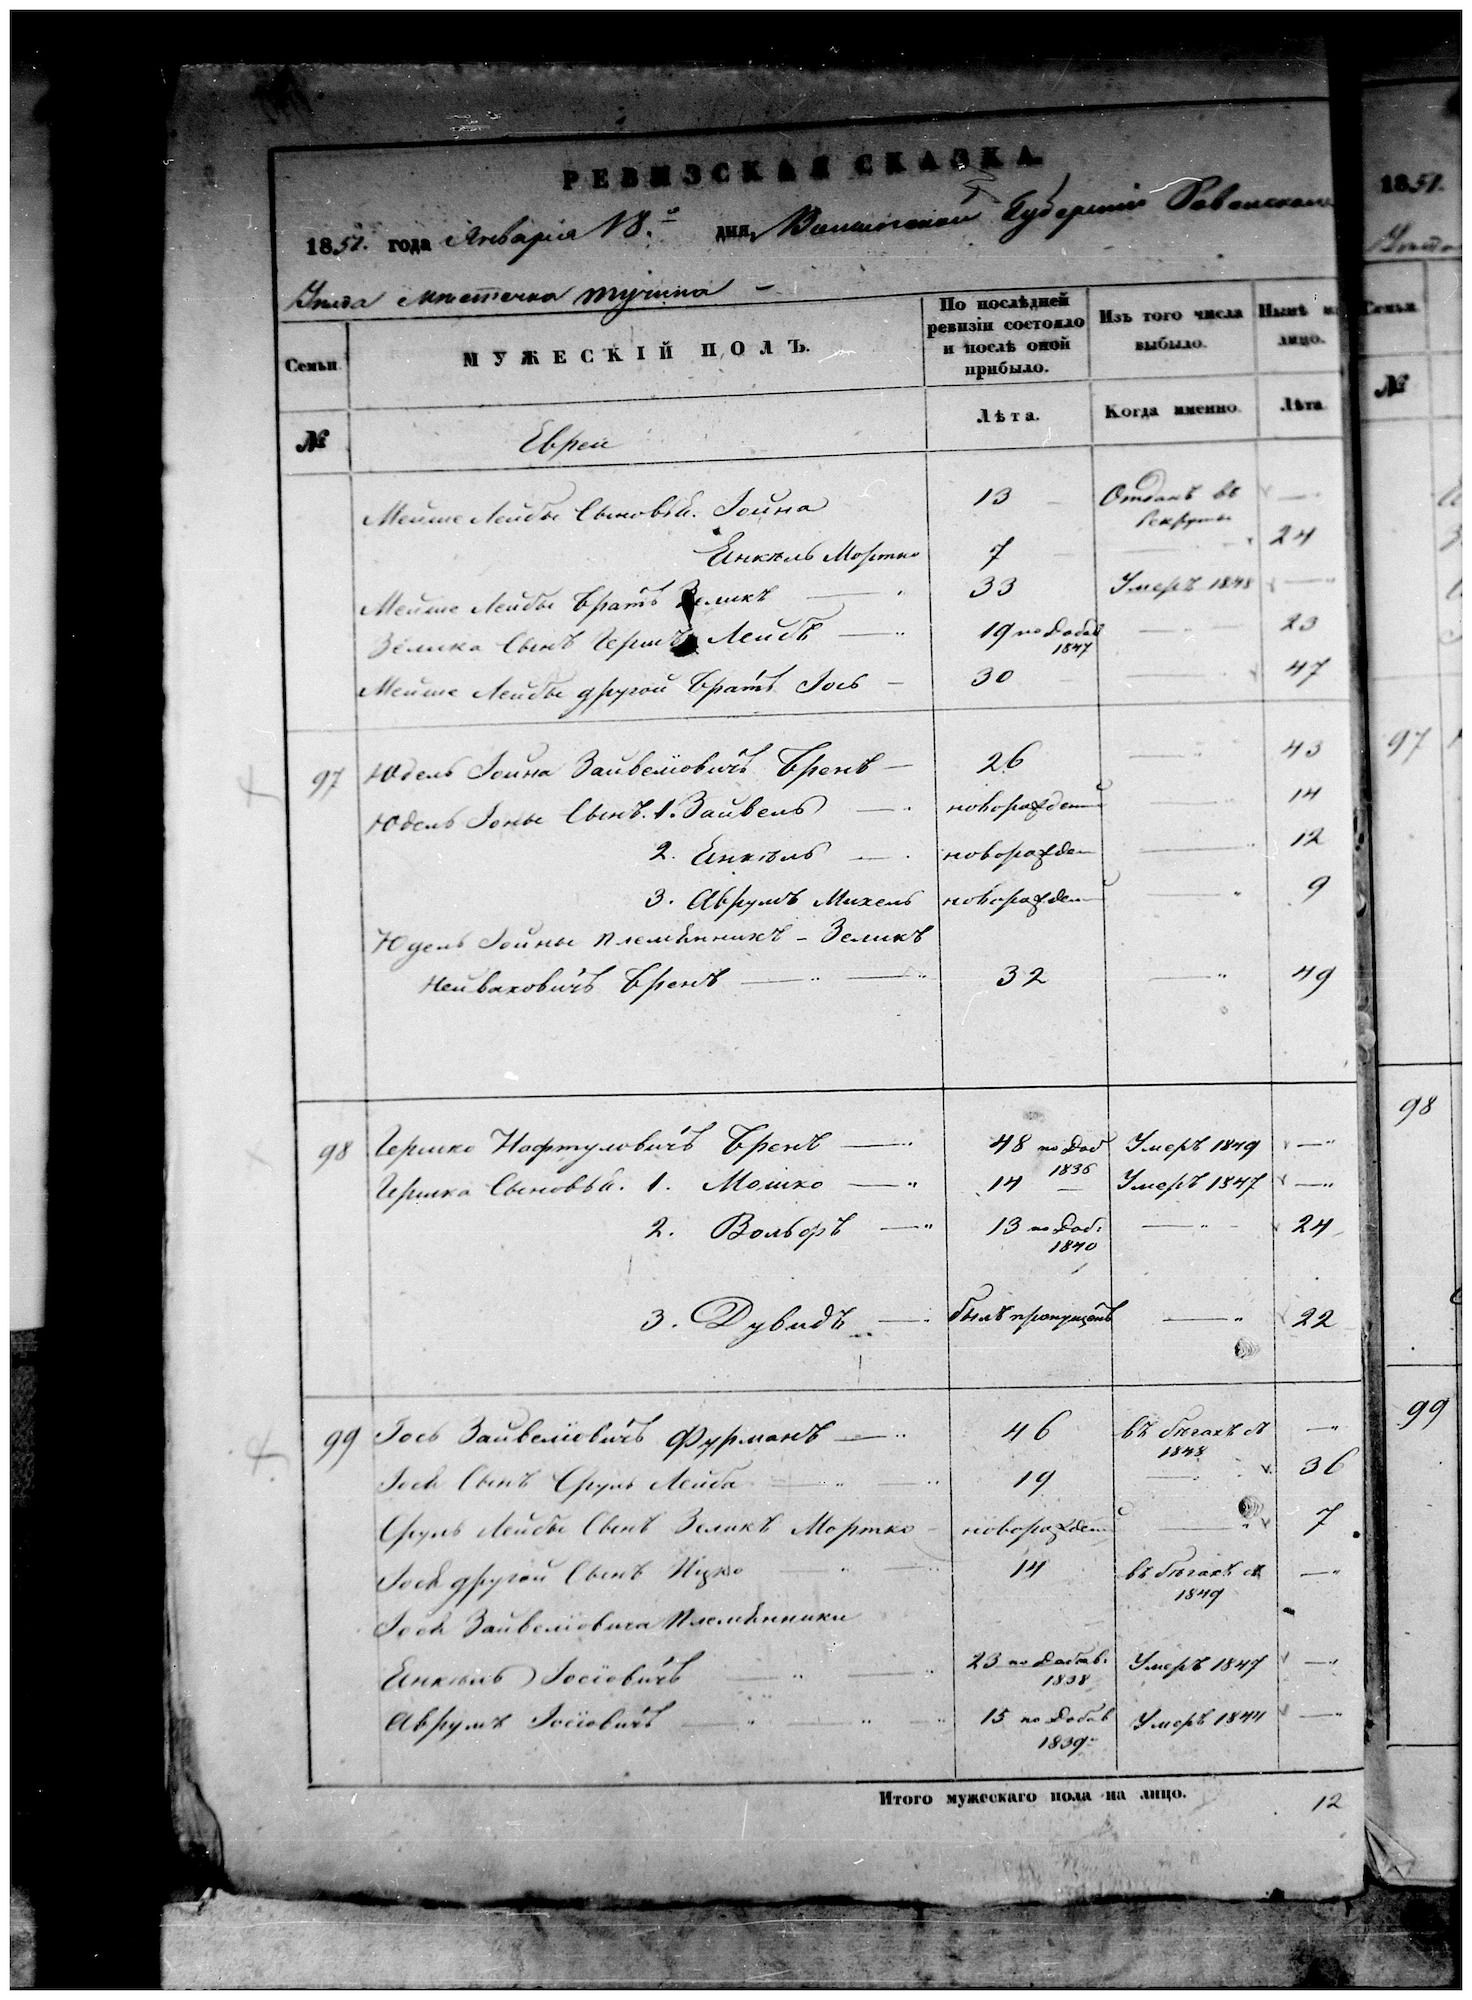 РЕВИЗСКАЯ СКАЗКА.
1851. года Января 18.го дня, Волынской Губерніи Ровенскаго
Уѣзда мѣстечка Тучина –
Семьи
МУЖЕСКІЙ ПОЛЪ.
По послѣдней ревизіи состояло и послѣ оной прибыло.
Изъ того числа выбыло.
Нынѣ на лицо.
№
Евреи
Лѣта.
Когда именно.
Лѣта.
Мейше Лейбы Сыновья. Іойна 13 Отданъ въ рекруты —
Енкель Мортко 7 — 24
Мейше Лейбы братъ Зеликъ — 33 Умеръ 1848 —
Зелика Сынъ Гершъ Лейбъ — 19 по добав 1847 — 23
Мейше Лейбы другой братъ Іось — 30 — 47
97 Юдель Іойна Зайвеліовичъ Бренъ — 26 — 43
Юдель Іоны Сынъ. 1. Зайвель — новорожден — 14
2. Енкель — новорожден — 12
3. Аврумъ Михель новорожден — 9
Юдель Іойны племянникъ – Зеликъ
Бренъ — 32 — 49
98 Гершко Нафтуловичъ Бренъ — 48 по доб 1836 Умеръ 1849 —
Гершка Сыновья. 1. Мошко — 14 — Умеръ 1847 —
2. Вольфъ — 13 по доб. 1840 — 24
3. Дувидъ — былъ пропущенъ — 22
99 Іось Зайвеліовичъ Фурманъ — 46 въ бѣгахъ съ 1848 —
Іося Сынъ Сруль Лейба — 19 — 36
Сруль Лейбы Сынъ Зеликъ Мортко – новорожден — 7
Іося другой Сынъ Ицко — 14 въ бѣгахъ съ 1849 —
Іося Зайвеліовича Племянники
Енкель Іосіовичъ — 23 по добав. 1838 Умеръ 1847 —
Аврумъ Іосіовичъ — 15 по добав 1839 Умеръ 1844 —
Итого мужескаго пола на лицо. 12
1851.
Семьи
№
97
98
99